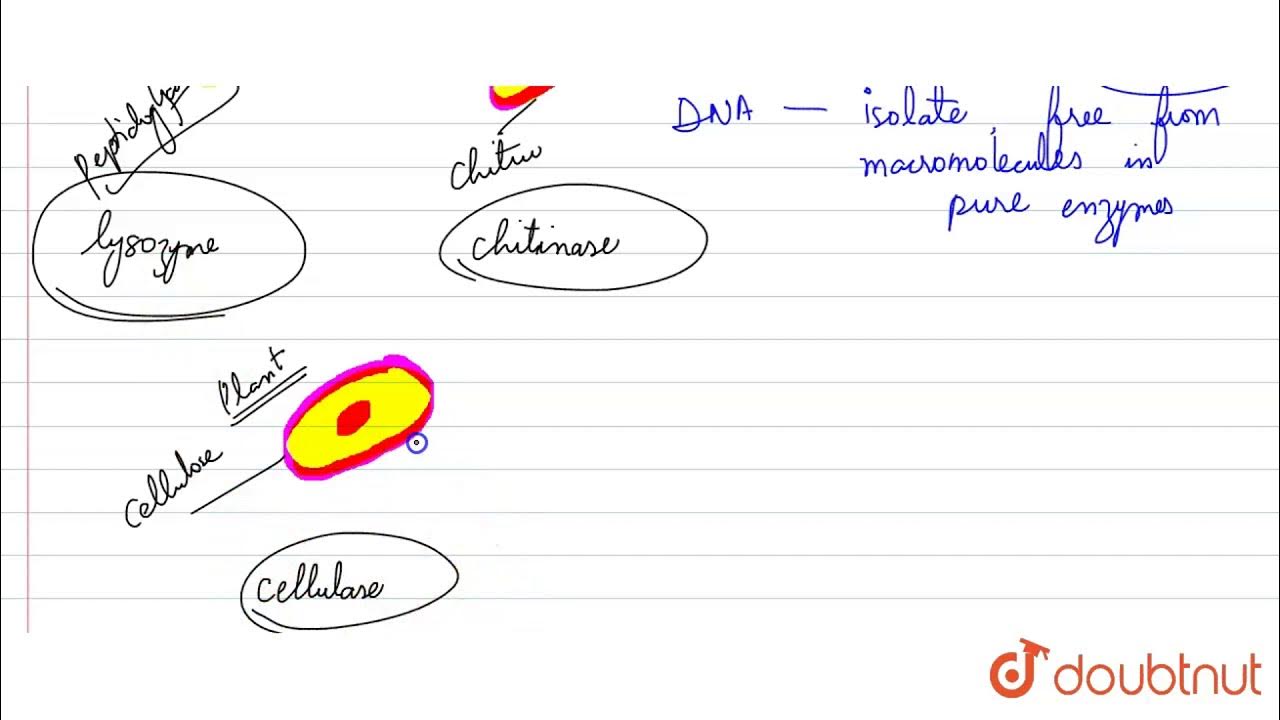 DNA — isolate, free from
macromolecules in
pure enzymes
chitin
lysozyme
chitinase
Plant
cellulose
cellulase
doubtnut